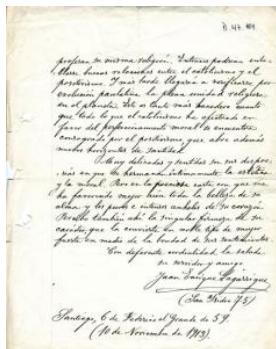 B. 47. 184
profesan su misma religión. Entonces podrían enta-
blarse buenas relaciones entre el catolicismo y el
positivismo. I mas tarde llegaría a verificarse por
evolución paulatina la plena unidad religiosa
en el planeta. Esto es tanto mas hacedero cuanto
que todo lo que el catolicismo ha efectuado en
favor del perfeccionamiento moral se encuentra
consagrado por el positivismo que abre además
nuevos horizontes de santidad.
Muy delicadas y sentidas son sus
en que se hermanan íntimamente la estética
y la moral. Pero en la preciosa carta con que me
ha favorecido mejor aún toda la belleza de su
alma y los puros e intensos anhelos de su corazón.
Resalta también ahí la singular firmeza de su
carácter, que la convierte en noble tipo de mujer
fuerte en medio de la bondad de sus sentimientos.
Con deferente cordialidad la saluda
su servidor y amigo.
Juan Enrique Lagarrigue
(San Isidro 75)
Santiago, 6 de Federico el Grande de 59.
(10 de Noviembre de 1913).